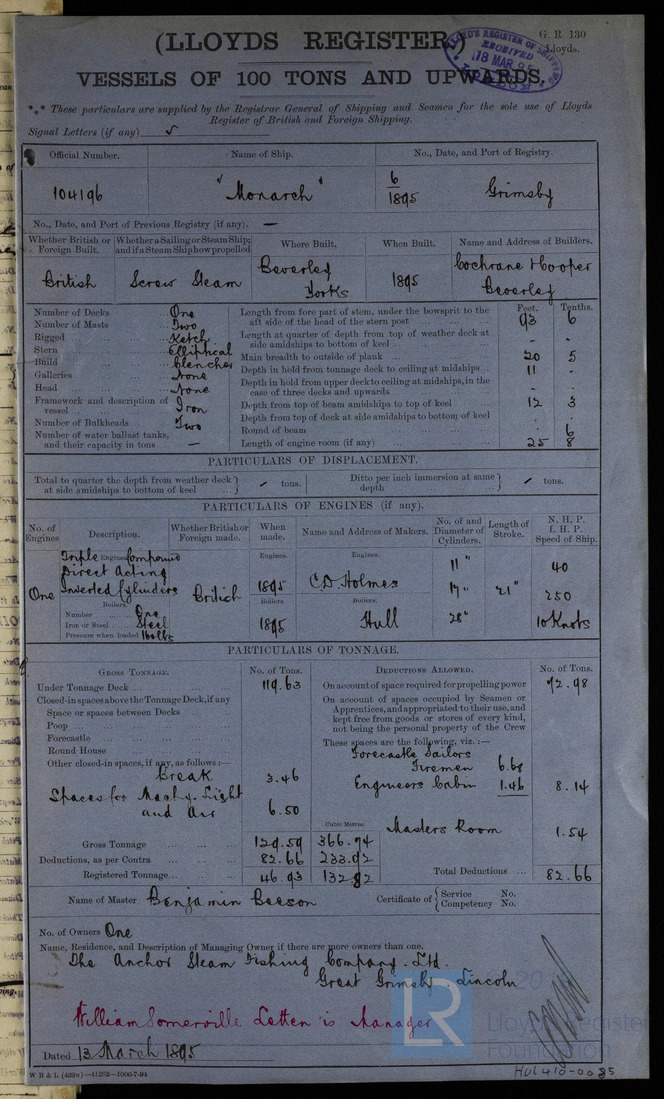 (LLOYDS REGISTER)
G. R. 130
Lloyds.
LLOYD'S REGISTER OF SHIPPING
RECEIVED
18 MAR 95
VESSELS OF 100 TONS AND UPWARDS.
*** These particulars are supplied by the Registrar General of Shipping and Seamen for the sole use of Lloyds
Register of British and Foreign Shipping.
Signal Letters (if any) ✓
Official Number. Name of Ship. No., Date, and Port of Registry.
104196 "Monarch" 6/1895 Grimsby
No., Date, and Port of Previous Registry (if any). —
Whether British or Foreign Built. Whether a Sailing or Steam Ship; and if a Steam Ship how propelled Where Built. When Built. Name and Address of Builders.
British Screw Steam Beverley Yorks 1895 Cochrane & Cooper Beverley
Number of Decks One
Number of Masts Two
Rigged Ketch
Stern Elliptical
Build Clencher
Galleries None
Head None
Framework and description of vessel Iron
Number of Bulkheads Two
Number of water ballast tanks, and their capacity in tons —
Feet. Tenths.
Length from fore part of stem, under the bowsprit to the aft side of the head of the stern post 93 6
Length at quarter of depth from top of weather deck at side amidships to bottom of keel - -
Main breadth to outside of plank 20 5
Depth in hold from tonnage deck to ceiling at midships 11 -
Depth in hold from upper deck to ceiling at midships, in the case of three decks and upwards - -
Depth from top of beam amidships to top of keel 12 3
Depth from top of deck at side amidships to bottom of keel . .
Round of beam . 6
Length of engine room (if any) 25 8
PARTICULARS OF DISPLACEMENT.
Total to quarter the depth from weather deck at side amidships to bottom of keel } ✓ tons. Ditto per inch immersion at same depth } ✓ tons.
PARTICULARS OF ENGINES (if any).
No. of Engines Description. Whether British or Foreign made. When made. Name and Address of Makers. No. of and Diameter of Cylinders. Length of Stroke. N. H. P. I. H. P. Speed of Ship.
Engines. Engines. Engines.
Triple Compound
Direct Acting
Inverted Cylinders
One British 1895 C.D. Holmes 11" 17" 28" 21" 40 250 10 Knots
Boilers. Boilers Boilers.
Number One
Iron or Steel Steel
Pressure when loaded 160 lbs
1895 Hull
PARTICULARS OF TONNAGE.
GROSS TONNAGE. No. of Tons. DEDUCTIONS ALLOWED. No. of Tons.
Under Tonnage Deck 119.63
Closed-in spaces above the Tonnage Deck, if any
Space or spaces between Decks
Poop
Forecastle
Round House
Other closed-in spaces, if any, as follows :—
Break 3.46
Spaces for Machy. Light
and Air 6.50
Cubic Metres.
Gross Tonnage 129.59 366.74
Deductions, as per Contra 82.66 233.92
Registered Tonnage 46.93 132.82
On account of space required for propelling power 72.98
On account of spaces occupied by Seamen or
Apprentices, and appropriated to their use, and
kept free from goods or stores of every kind,
not being the personal property of the Crew
These spaces are the following, viz. :—
Forecastle Sailors
Firemen 6.68
Engineers Cabin 1.46 8.14
Masters Room 1.54
Total Deductions 82.66
Name of Master Benjamin Beeson Certificate of { Service No. Competency No.
No. of Owners One
Name, Residence, and Description of Managing Owner if there are more owners than one.
The Anchor Steam Fishing Company. Ltd.
Great Grimsby Lincoln
William Somerville Letten is Manager
LR
Lloyd's Register
Foundation
Dated 13 March 1895
HUL410-0085
W B & L (439s)—41262—1000-7-94